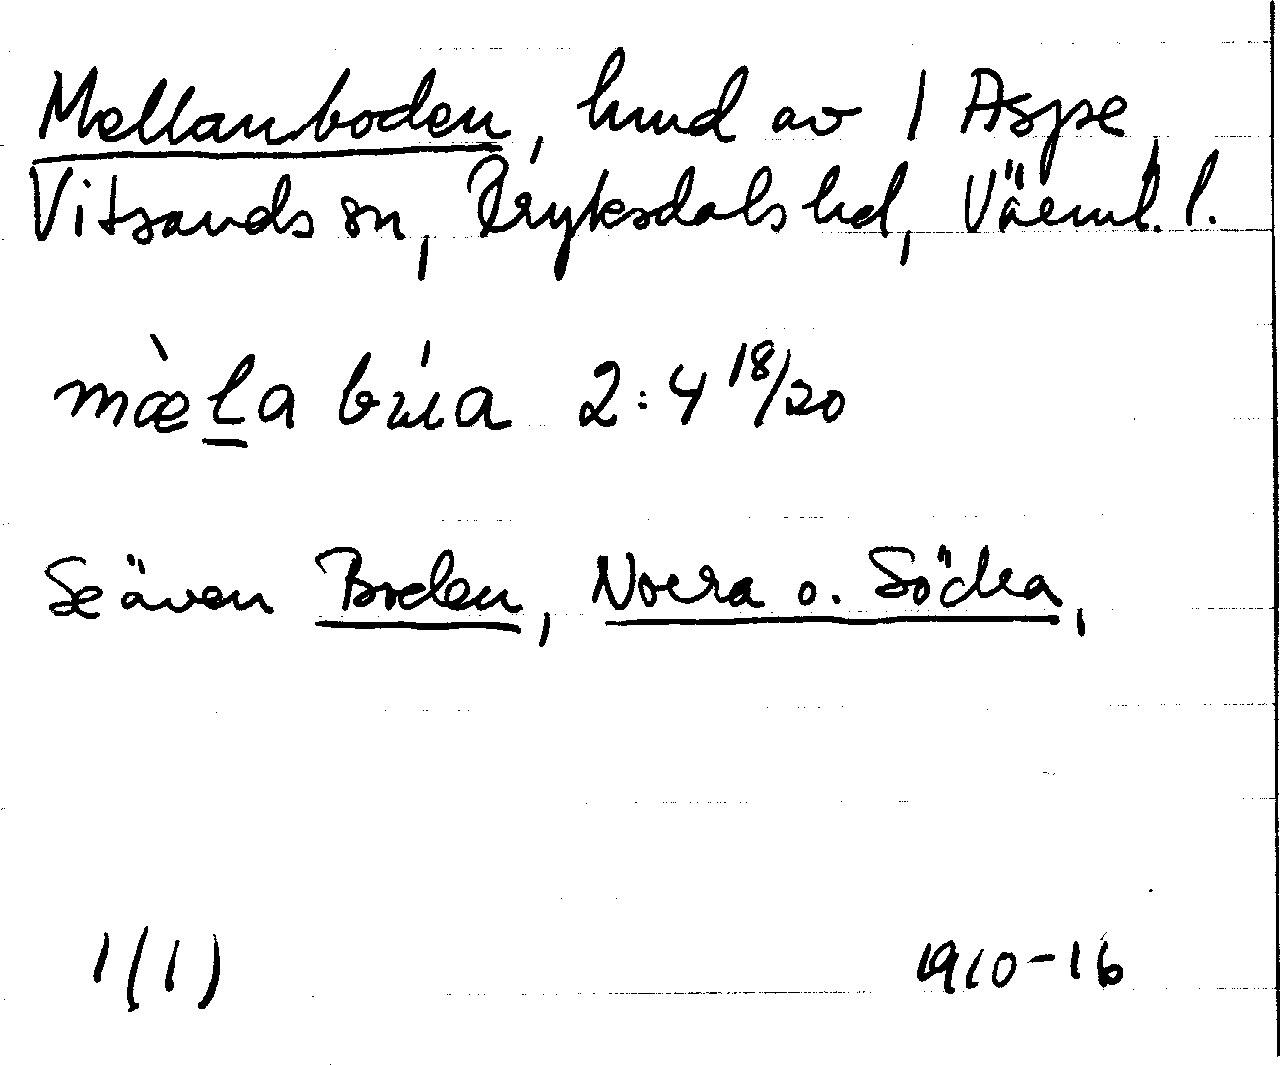 Mellanboden, hmd av 1 Aspe
Vitsands sn, Fryksdals hd, Värml. l.
mæ̀ɫa búa 2:4 18/20
Se även Boden, Norra o. Södra,
1(1) 1910-16